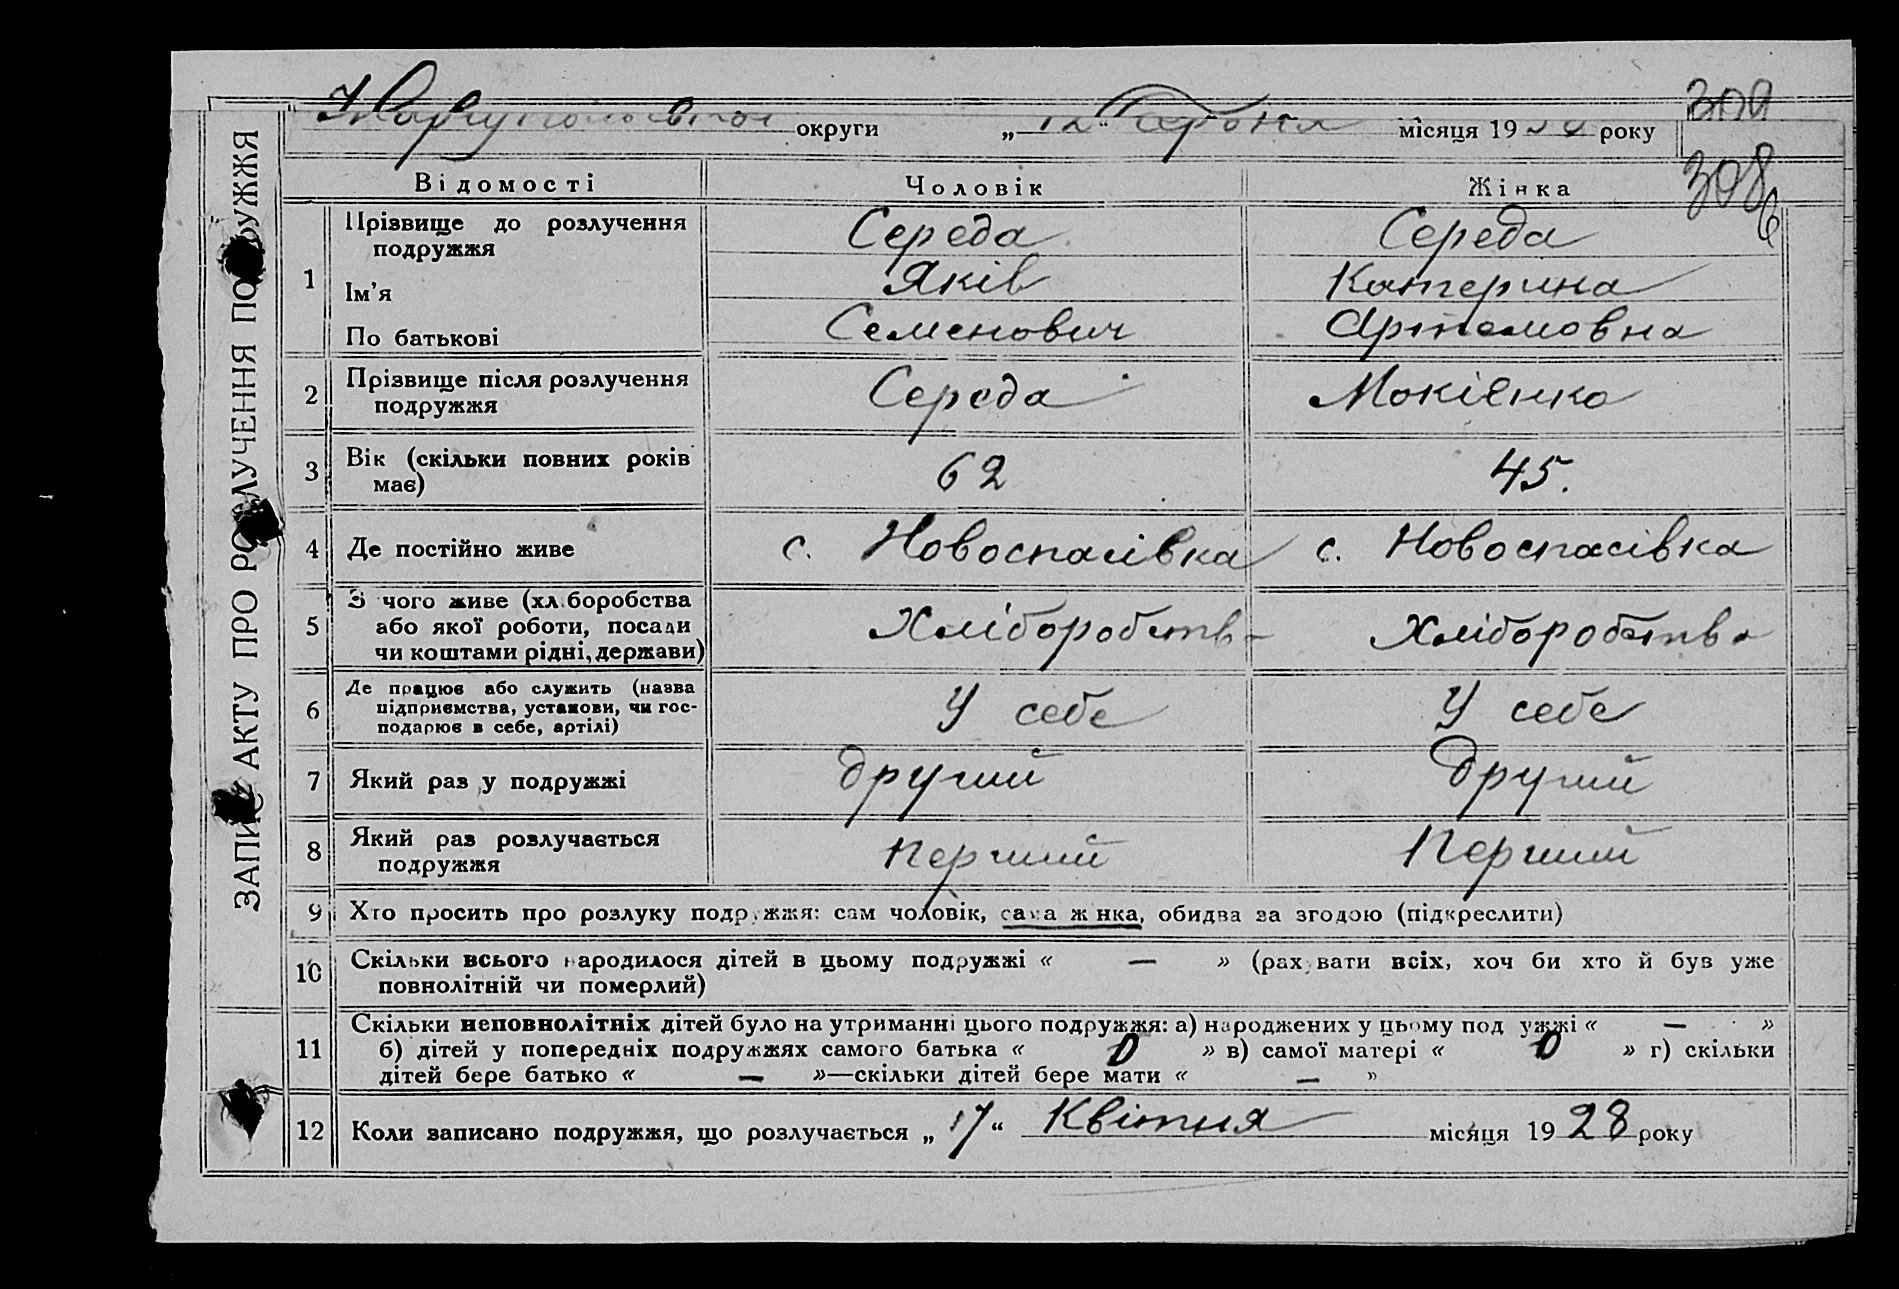 309
Маріупольської округи „12“ серпня місяця 19 року
308б
ЗАПИС АКТУ ПРО РОЗЛУЧЕННЯ ПОДРУЖЖЯ
Відомості Чоловік Жінка
1 Прізвище до розлучення подружжя Середа Середа
Ім’я Яків Катерина
По батькові Семенович Артемовна
2 Прізвище після розлучення подружжя Середа Мокієнко
3 Вік (скільки повних років має) 62 45.
4 Де постійно живе с. Новоспасівка с. Новоспасівка
5 З чого живе (хліборобства
або якої роботи, посади
чи коштами рідні, держави) Хліборобство Хліборобство
6 Де працює або служить (назва
підприємства, установи, чи гос-
подарює в себе, артілі) У себе У себе
7 Який раз у подружжі другий другий
8 Який раз розлучається
подружжя перший Перший
9 Хто просить про розлуку подружжя: сам чоловік, сама жінка, обидва за згодою (підкреслити)
10 Скільки всього народилося дітей в цьому подружжі « — » (рахувати всіх, хоч би хто й був уже
повнолітній чи померлий)
11 Скільки неповнолітніх дітей було на утриманні цього подружжя: а) народжених у цьому подружжі « — »
б) дітей у попередніх подружжях самого батька « 0 » в) самої матері « 0 » г) скільки
дітей бере батько « — »—скільки дітей бере мати « — »
12 Коли записано подружжя, що розлучається „17“ Квітня місяця 1928 року